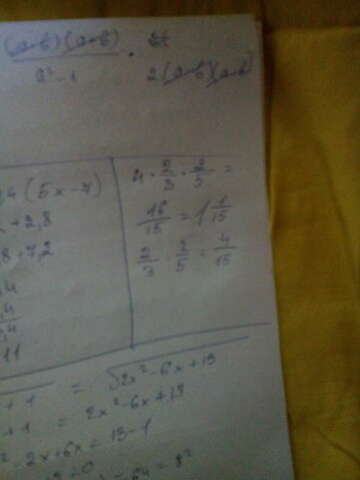 (a-b)(a-b)
a² - 1
2(a-b)(a-b)
,4(5x-7)
x+2,8
8+7,2
,4
,4
,4
11
4 · 2/3 · 2/5 =
16/15 = 1 1/15
2/3 · 2/5 = 4/15
+ 1 = √2x²-6x+13
+ 1 = 2x²-6x+13
² - 2x+6x = 13-1
= 64 = 8²